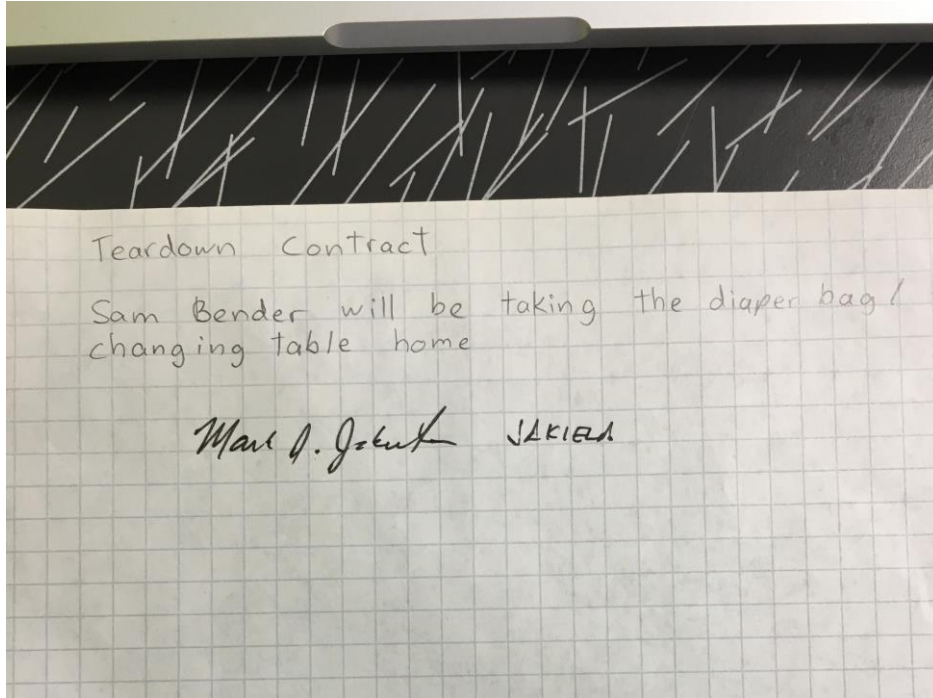 Teardown Contract
Sam Bender will be taking the diaper bag/
changing table home
Mark J. JAKIELA